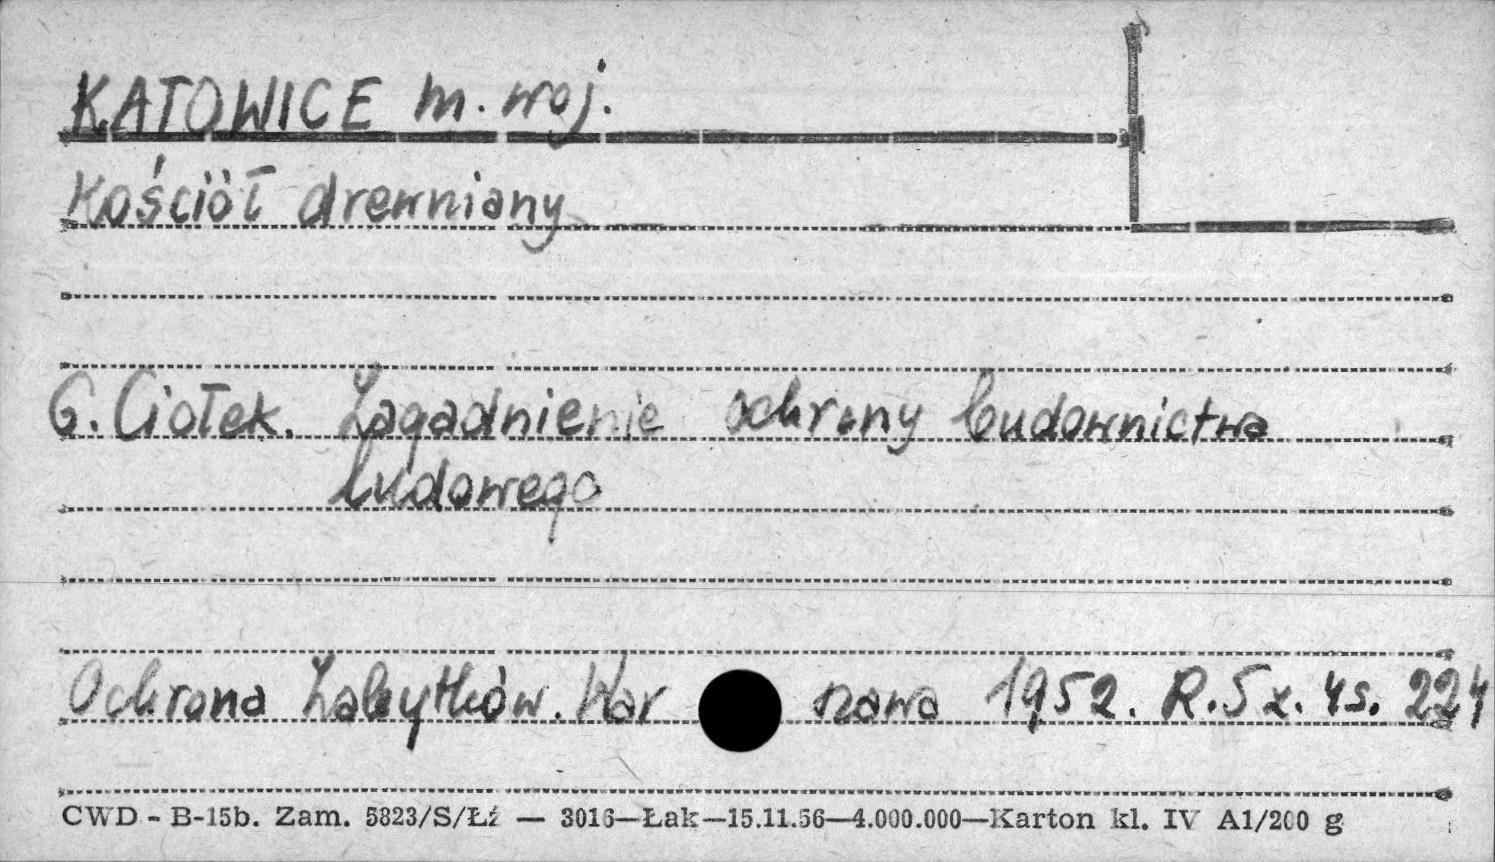 KATOWICE m. woj.
Kościół drewniany
G. Ciołek. Zagadnienie ochrony budownictwa
ludowego
Ochrona Zabytków. War szawa 1952. R.5 z. 4 s. 224
CWD - B-15b. Zam. 5823/S/Łź — 3016—Łak—15.11.56—4.000.000—Karton kl. IV A1/200 g